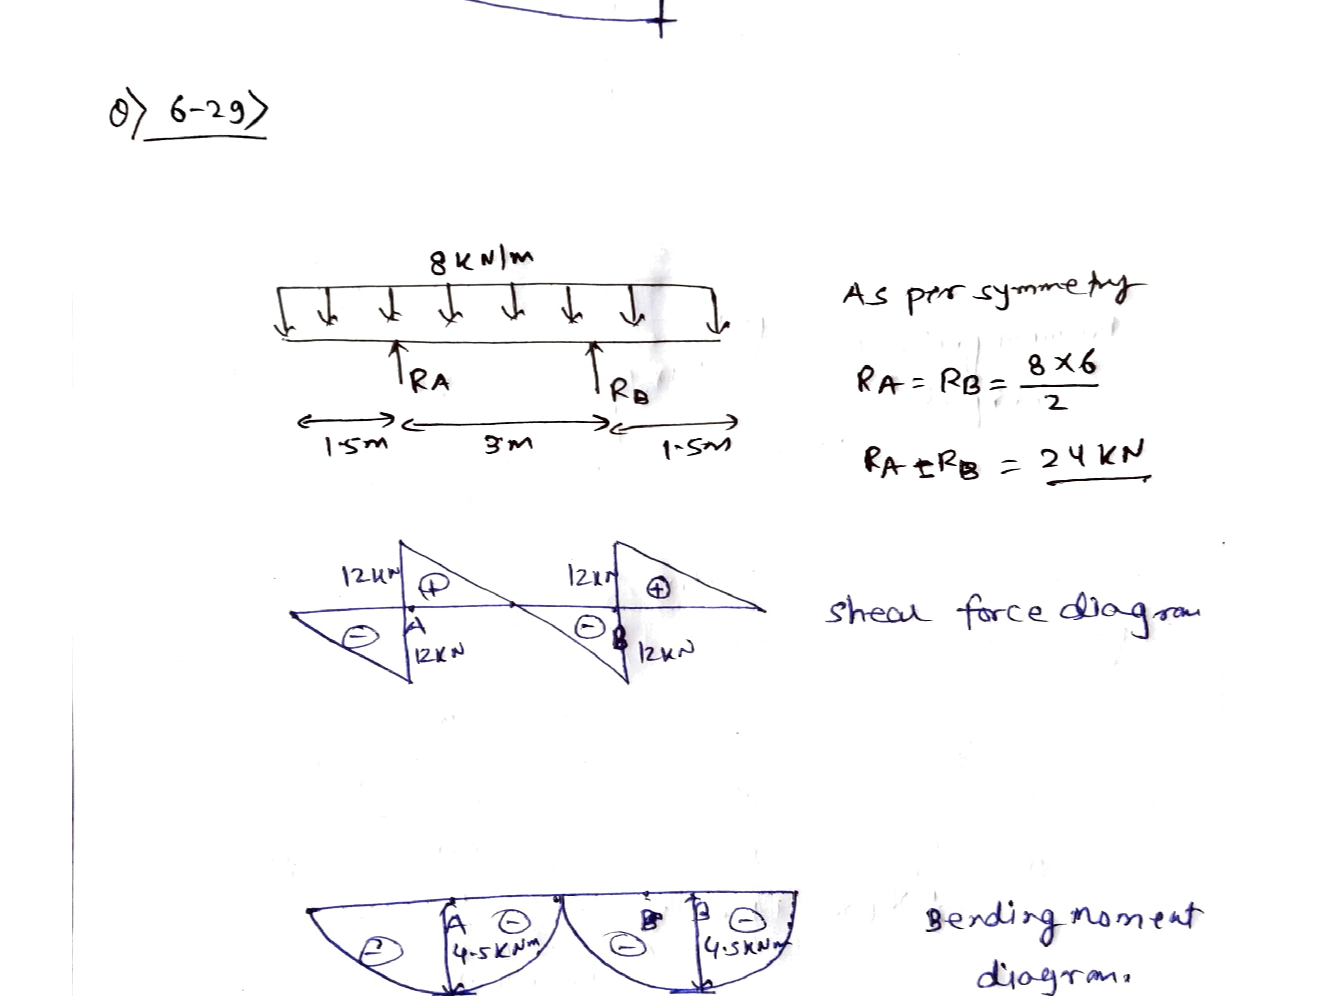 Q) 6-29)
8 KN/m
RA
RB
1.5m
3m
1.5m
As per symmetry
RA = RB = 8 × 6 / 2
RA = RB = 24 KN
12KN
+
12KN
+
-
A
12KN
-
B
12KN
Shear force diagram
A
-
-
4.5KNm
B
-
B
-
4.5KNm
Bending moment
diagram.